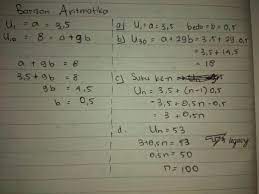 Barisan Aritmatika
U₁ = a = 3,5
U₁₀ = 8 = a+9b
a + 9b = 8
3,5 + 9b = 8
9b = 4,5
b = 0,5
a) U₁ = a = 3,5 beda = b = 0,5
b) U₃₀ = a + 29b = 3,5 + 29.0,5
= 3,5 + 14,5
= 18
c) Suku ke-n
Un = 3,5 + (n-1) 0,5
= 3,5 + 0,5n - 0,5
= 3 + 0,5n
d. Un = 53
3+0,5n = 53
0,5n = 50
n = 100